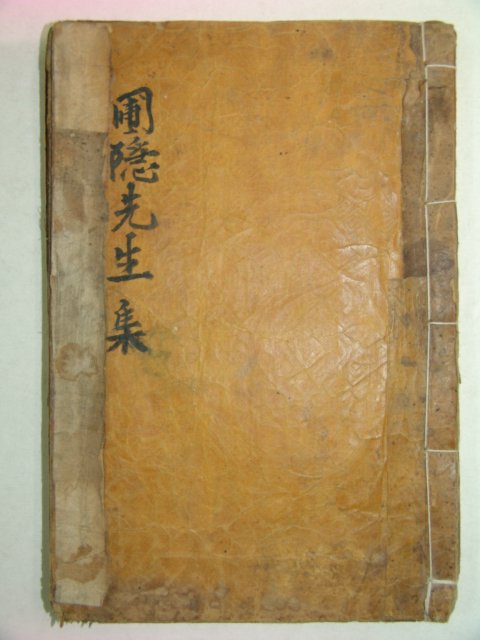 圃隱先生集